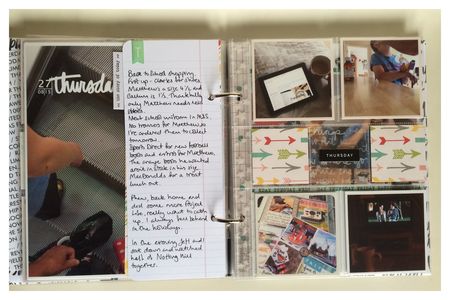 27
08/15
thursday
Back to School shopping.
First up - Clarks for shoes.
Matthew's a size 4½ and
Callum is 1½. Thankfully
only Matthew needs new
shoes.
Next school uniform in M&S.
No trousers for Matthew so
I've ordered them to collect
tomorrow.
Sports Direct for new football
boots and
for Matthew.
The
boots he wanted
in stock in his size.
MacDonalds for a treat
lunch out.
Phew, back home and
did some more Project
Life, really want to catch
up. I always fall behind
in the holidays.
In the evening Jeff and I
sat down and watched
half of Notting Hill
together.
THURSDAY